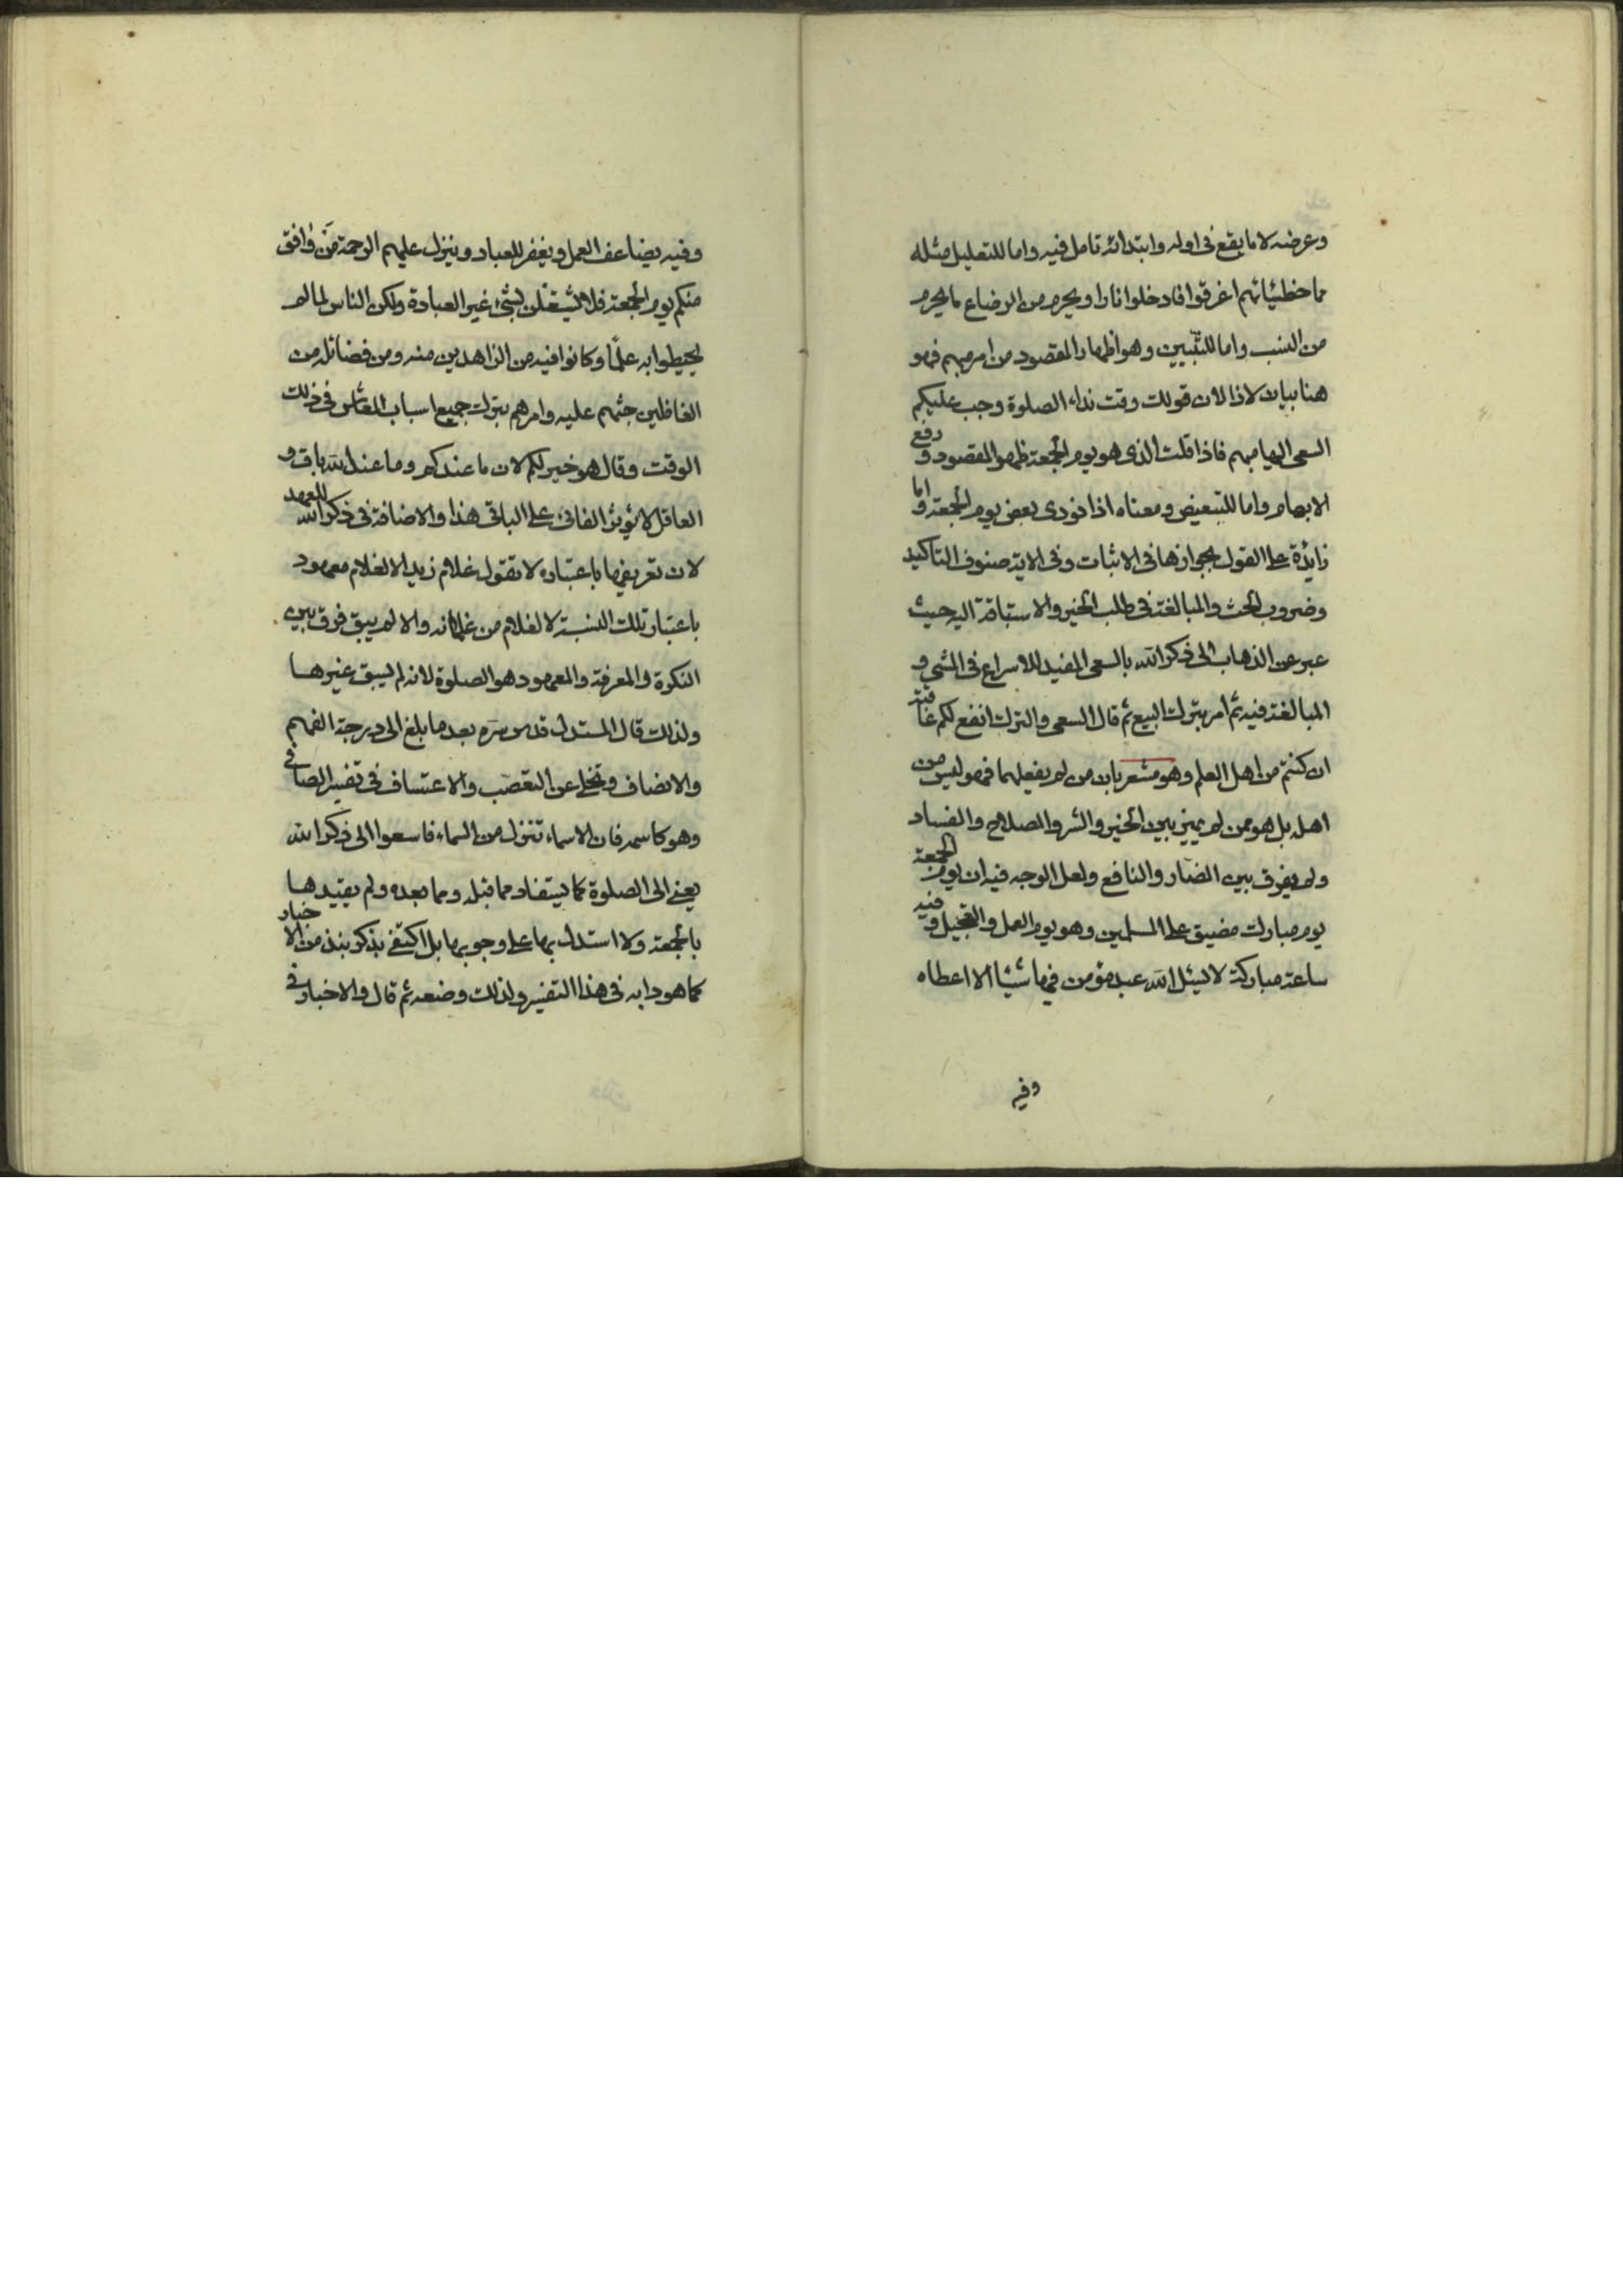 وعرضه لا ما يقع فى اوله وابتدائه تامل فيه واما للتعليل مثله
مما خطيئاتهم اغرقوا فادخلوا نارا ويحرم من الرضاع ما يحرم
من النسب واما للتبيين وهو اظهار المقصود من امر مبهم فهو
هنا بيان لاذا لان قولك وقت نداء الصلوة وجب عليكم
السعى اليها مبهم فاذا قلت الذى هو يوم الجمعة ظهر المقصود و رفع
الابهام واما للتبعيض ومعناه اذا نودى بعض يوم الجمعة واما
زايدة على القول بجوازها فى الاثبات وفى الاية صنوف التاكيد
وضروب الحث والمبالغة فى طلب الخير والاستباقة اليه حيث
عبر عن الذهاب الى ذكر الله بالسعى المفيد للاسراع فى المشي و
المبالغة فيه ثم امر بترك البيع ثم قال السعى والترك انفع لكم عاقبة
ان كنتم من اهل العلم وهو مشعر بان من لم يفعلهما فهو ليس من
اهله بل هو ممن لم يميز بين الخير والشر والصلاح والفساد
ولم يفرق بين الضار والنافع ولعل الوجه فيه ان يوم الجمعة
يوم مبارك مضيق على المسلمين وهو يوم العمل والتعجيل وفيه
ساعة مباركة لا يسئل الله عبد مؤمن فيها شيئا الا اعطاه
وفيه
وفيه يضاعف العمل ويغفر للعباد وينزل عليهم الرحمة فمن وافق
منكم يوم الجمعة فلا يشتغلن بشئ غير العبادة ولكن الناس لما لم
يحيطوا به علمًا وكانوا فيه من الزاهدين منه ومن فضائله من
الغافلين حثهم عليه وامرهم بترك جميع اسباب المعاش فى ذلك
الوقت وقال هو خير لكم لان ما عندكم وما عند الله باق و
العاقل لا يؤثر الفانى على الباقى هذا والاضافة فى ذكر الله للعهد
لان تعريفها باعتباره لا تقول غلام زيد الا لغلام معهود
باعتبار تلك النسبة لا لغلام من غلمانه والا لم يبق فرق بين
النكرة والمعرفة والمعهود هو الصلوة لانه لم يسبق غيرها
ولذلك قال المستدل قدس سره بعد ما بلغ الى درجة الفهم
والانصاف وتخلى عن التعصب والاعتساف فى تفسير الصافى
وهو كاسمه فان الاسماء تنزل من السماء فاسعوا الى ذكر الله
يعنى الى الصلوة كما يستفاد مما قبله ومما بعده ولم يقيدها
بالجمعة ولا استدل بها على وجوبها بل اكتفى بذكر نبذ من الاخبار
كما هو دابه فى هذا التفسير ولذلك وضعه ثم قال والاخبار فى